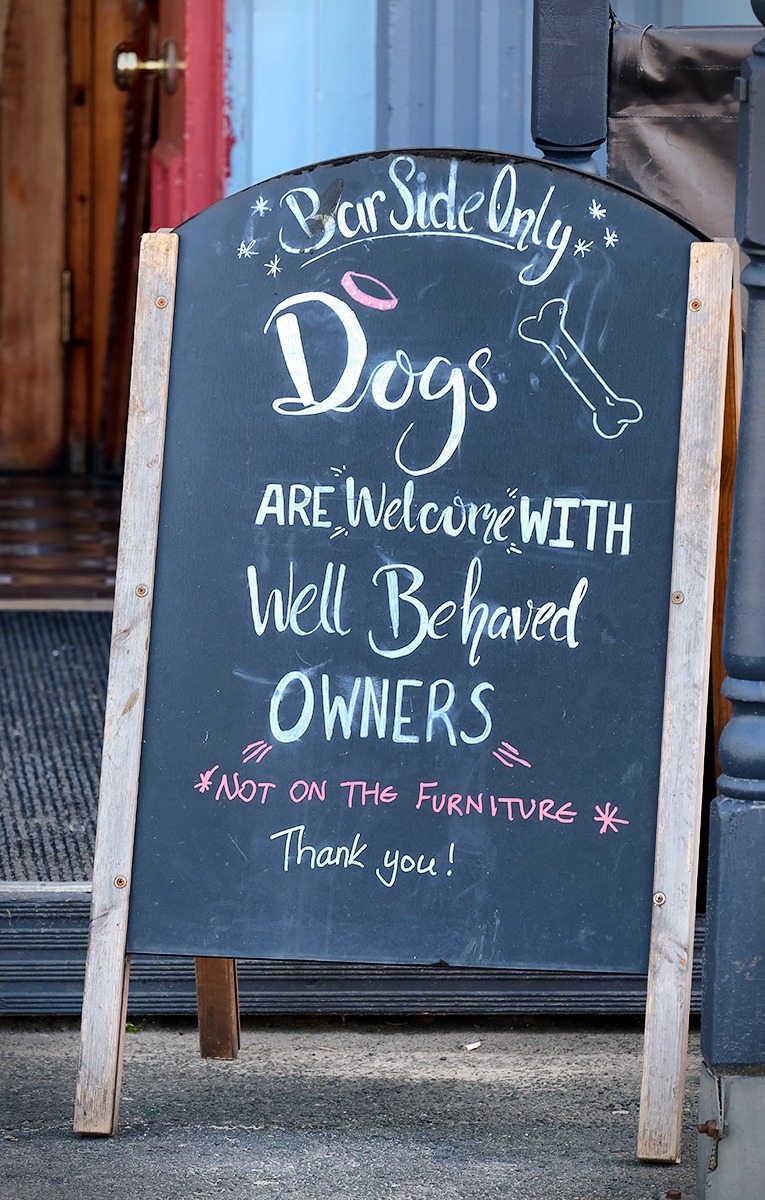 Bar Side Only
Dogs
ARE Welcome WITH
Well Behaved
OWNERS
*NOT ON THE FURNITURE *
Thank you!